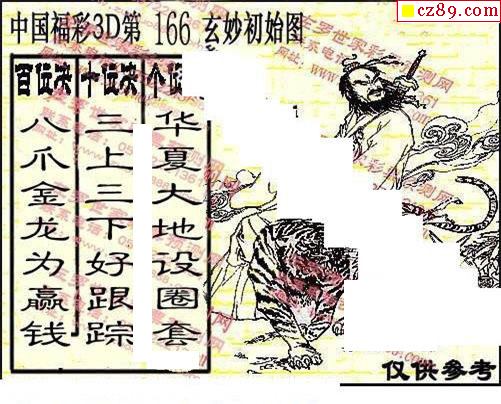 cz89.com
中国福彩3D第 166 玄妙初始图
百位决
八爪金龙为赢钱
十位决
三上三下好跟踪
个位
华夏大地设圈套
仅供参考